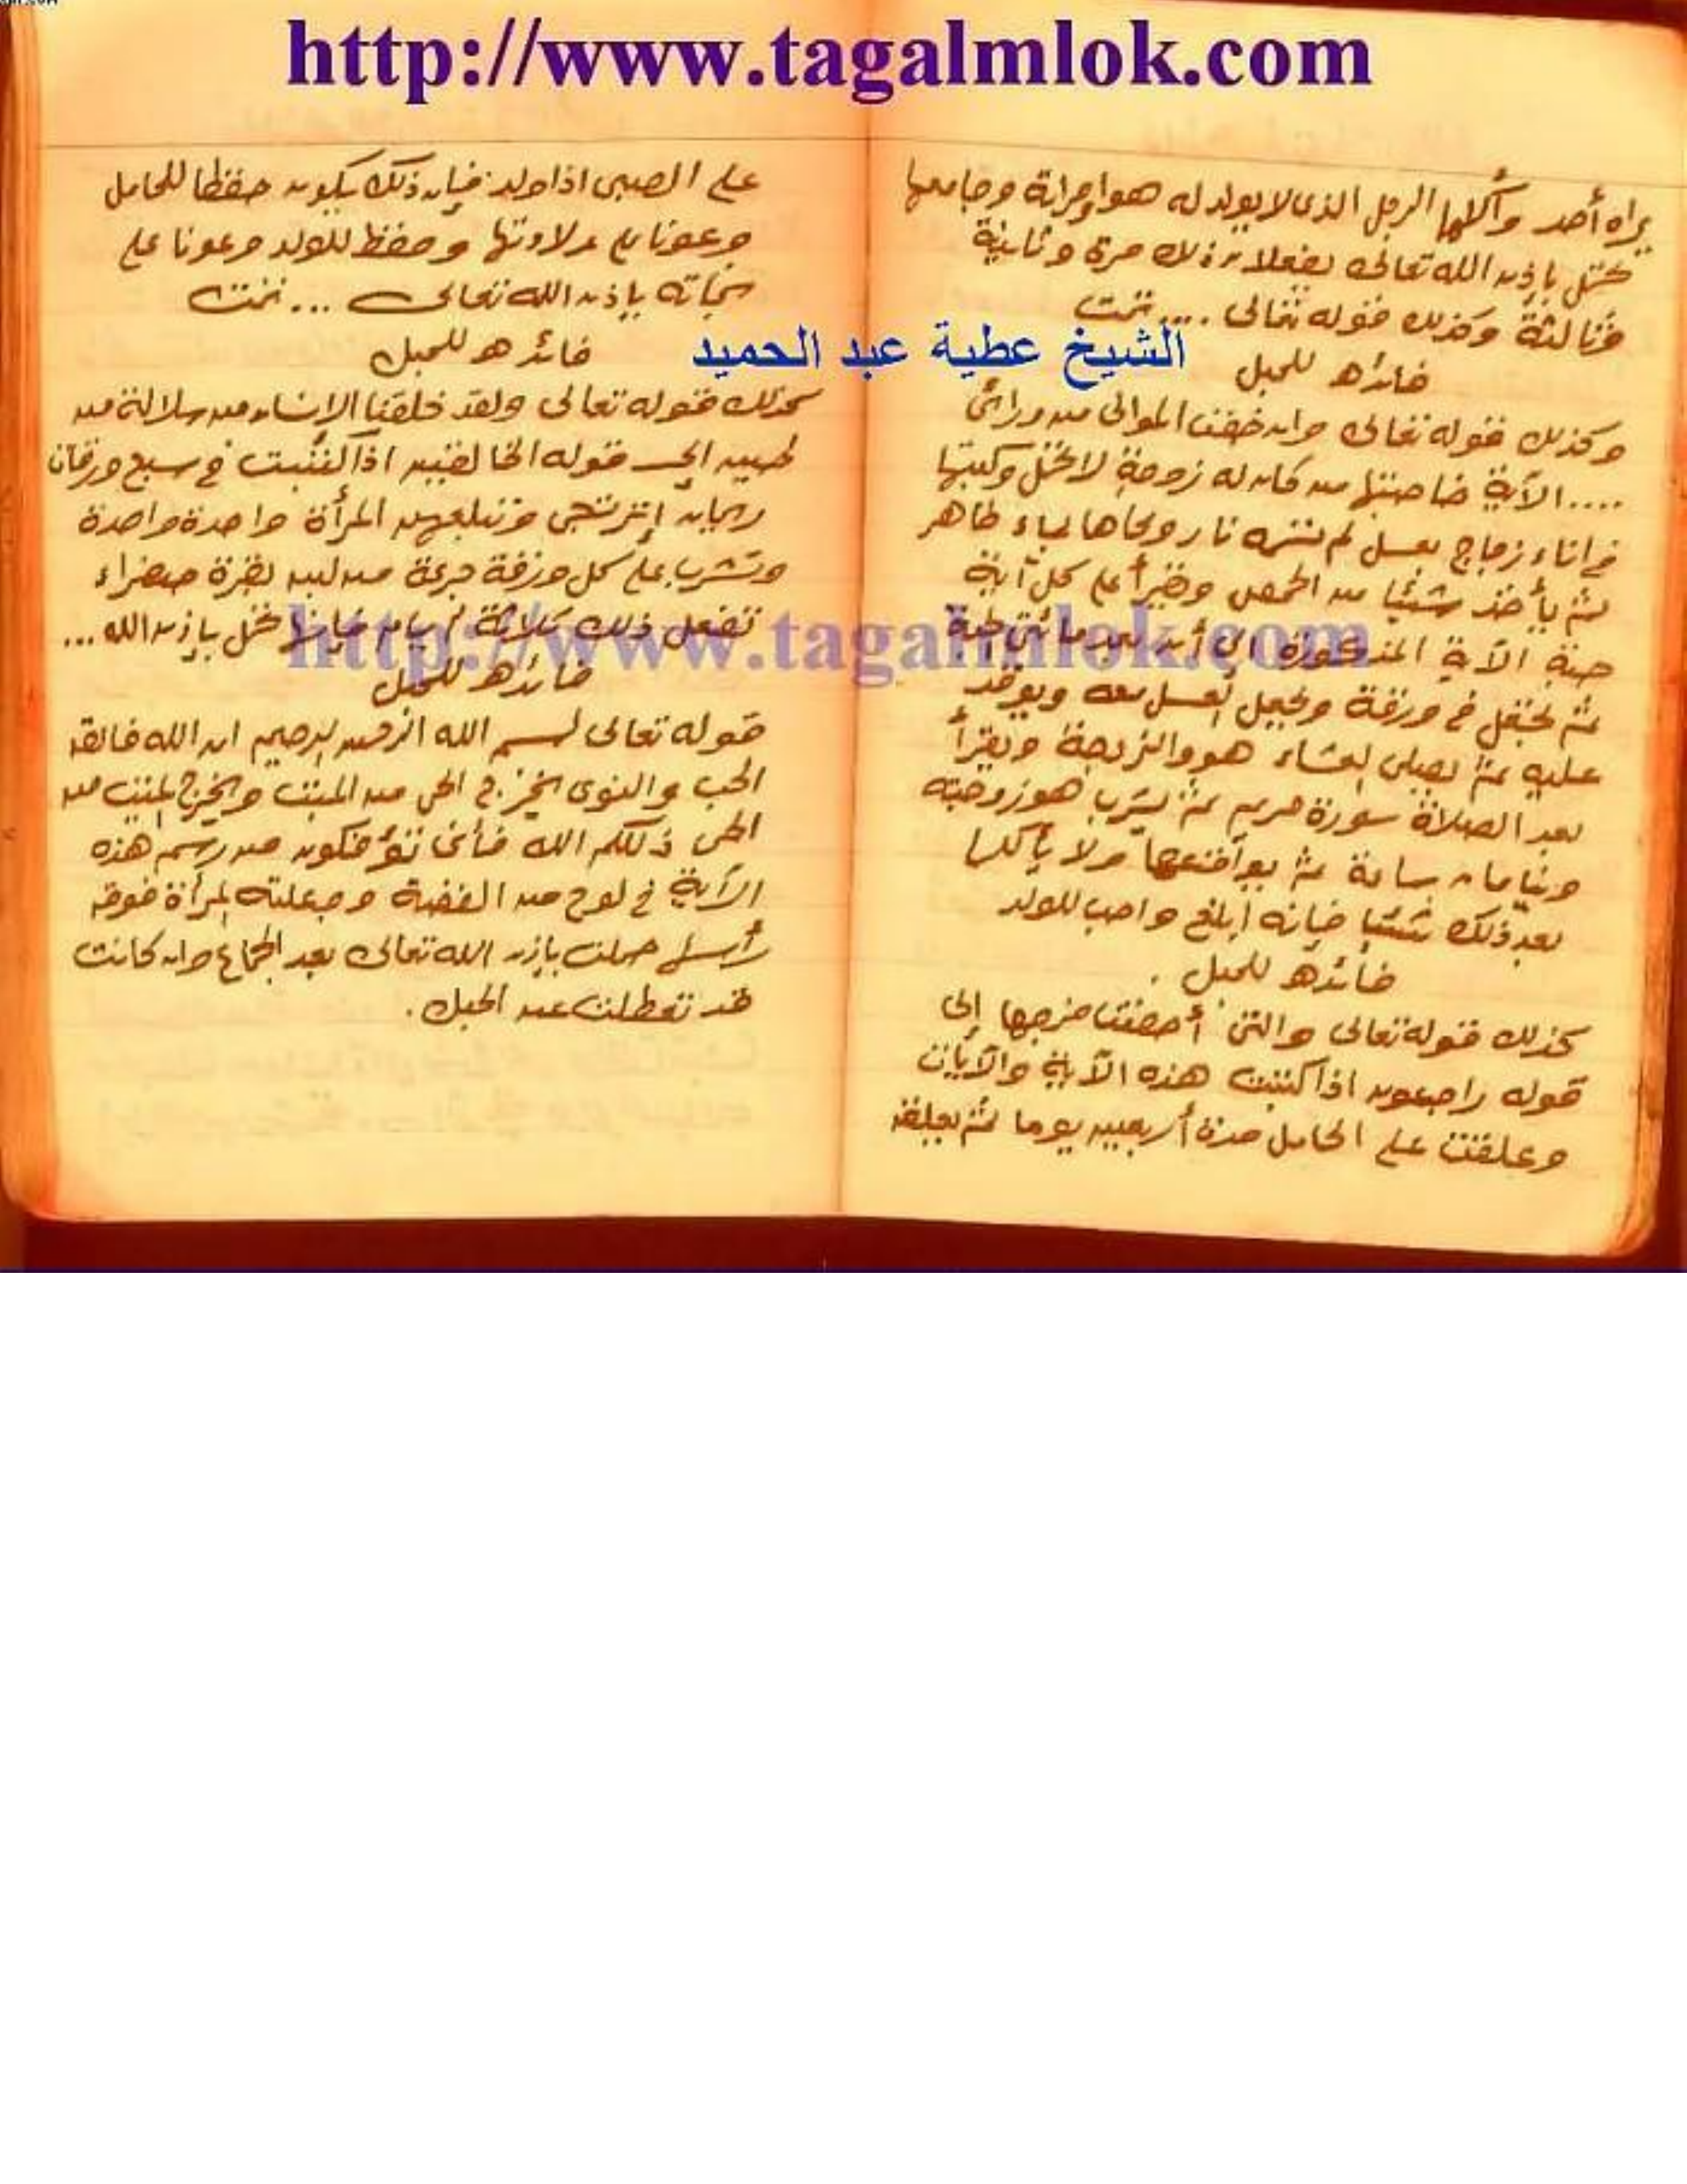 http://www.tagalmlok.com
يراه أحد وأكلها الرجل الذى لا يولد له هو وامرأته وجامعها
تحمل بإذن الله تعالى يفعلان ذلك مرة وثانية
وثالثة وكذلك قوله تعالى .... تمت
فائده للحبل
وكذلك قوله تعالى وان خفت الموالى من ورائى
.... الآية خاصيتها من كان له زوجة لا تحمل وكتبها
فى اناء زجاج بعسل لم تمسه نار ومحاها بماء طاهر
ثم يأخذ شيئا من الحمص وقرأ على كل
حبة الآية المذكورة الى أن حبة
ثم تجعل فى ورقة وتجعل العسل معه ويوقد
عليه ثم يصلى العشاء هو والزوجة ويقرأ
بعد الصلاة سورة مريم ثم يشرب هو وزوجته
وينامان ساعة ثم يواقعها ولا يأكلا
بعد ذلك شيئا فإنه أبلغ واجب للولد
فائده للحبل .
كذلك قوله تعالى والتى أحصنت فرجها إلى
قوله راجعون اذا كتبت هذه الآية والآيات
وعلقت على الحامل مدة أربعين يوما ثم يعلق
على الصبى اذا ولد فإن ذلك يكون حفظا للحامل
وعونا على ولادتها وحفظ للولد وعونا على
نجاته بإذن الله تعالى ... تمت
الشيخ عطية عبد الحميد
فائده للحبل
كذلك قوله تعالى ولقد خلقنا الانسان من سلالة من
طين الى قوله الخالقين اذا كتبت فى سبع ورقات
ريحان وتبلعهم المرأة واحدة واحدة
وتشرب على كل ورقة جرعة من لبن بقرة صفراء
تفعل ذلك ثلاثة أيام فإنها تحمل بإذن الله ...
http://www.tagalmlok.com
فائده للحبل
قوله تعالى بسم الله الرحمن الرحيم ان الله فالق
الحب والنوى يخرج الحى من الميت ويخرج الميت من
الحى ذلكم الله فأنى تؤفكون من رسم هذه
الآية فى لوح من الفضة وجعلته المرأة فوق
رأسها حملت بإذن الله تعالى بعد الجماع وان كانت
قد تعطلت عن الحبل .